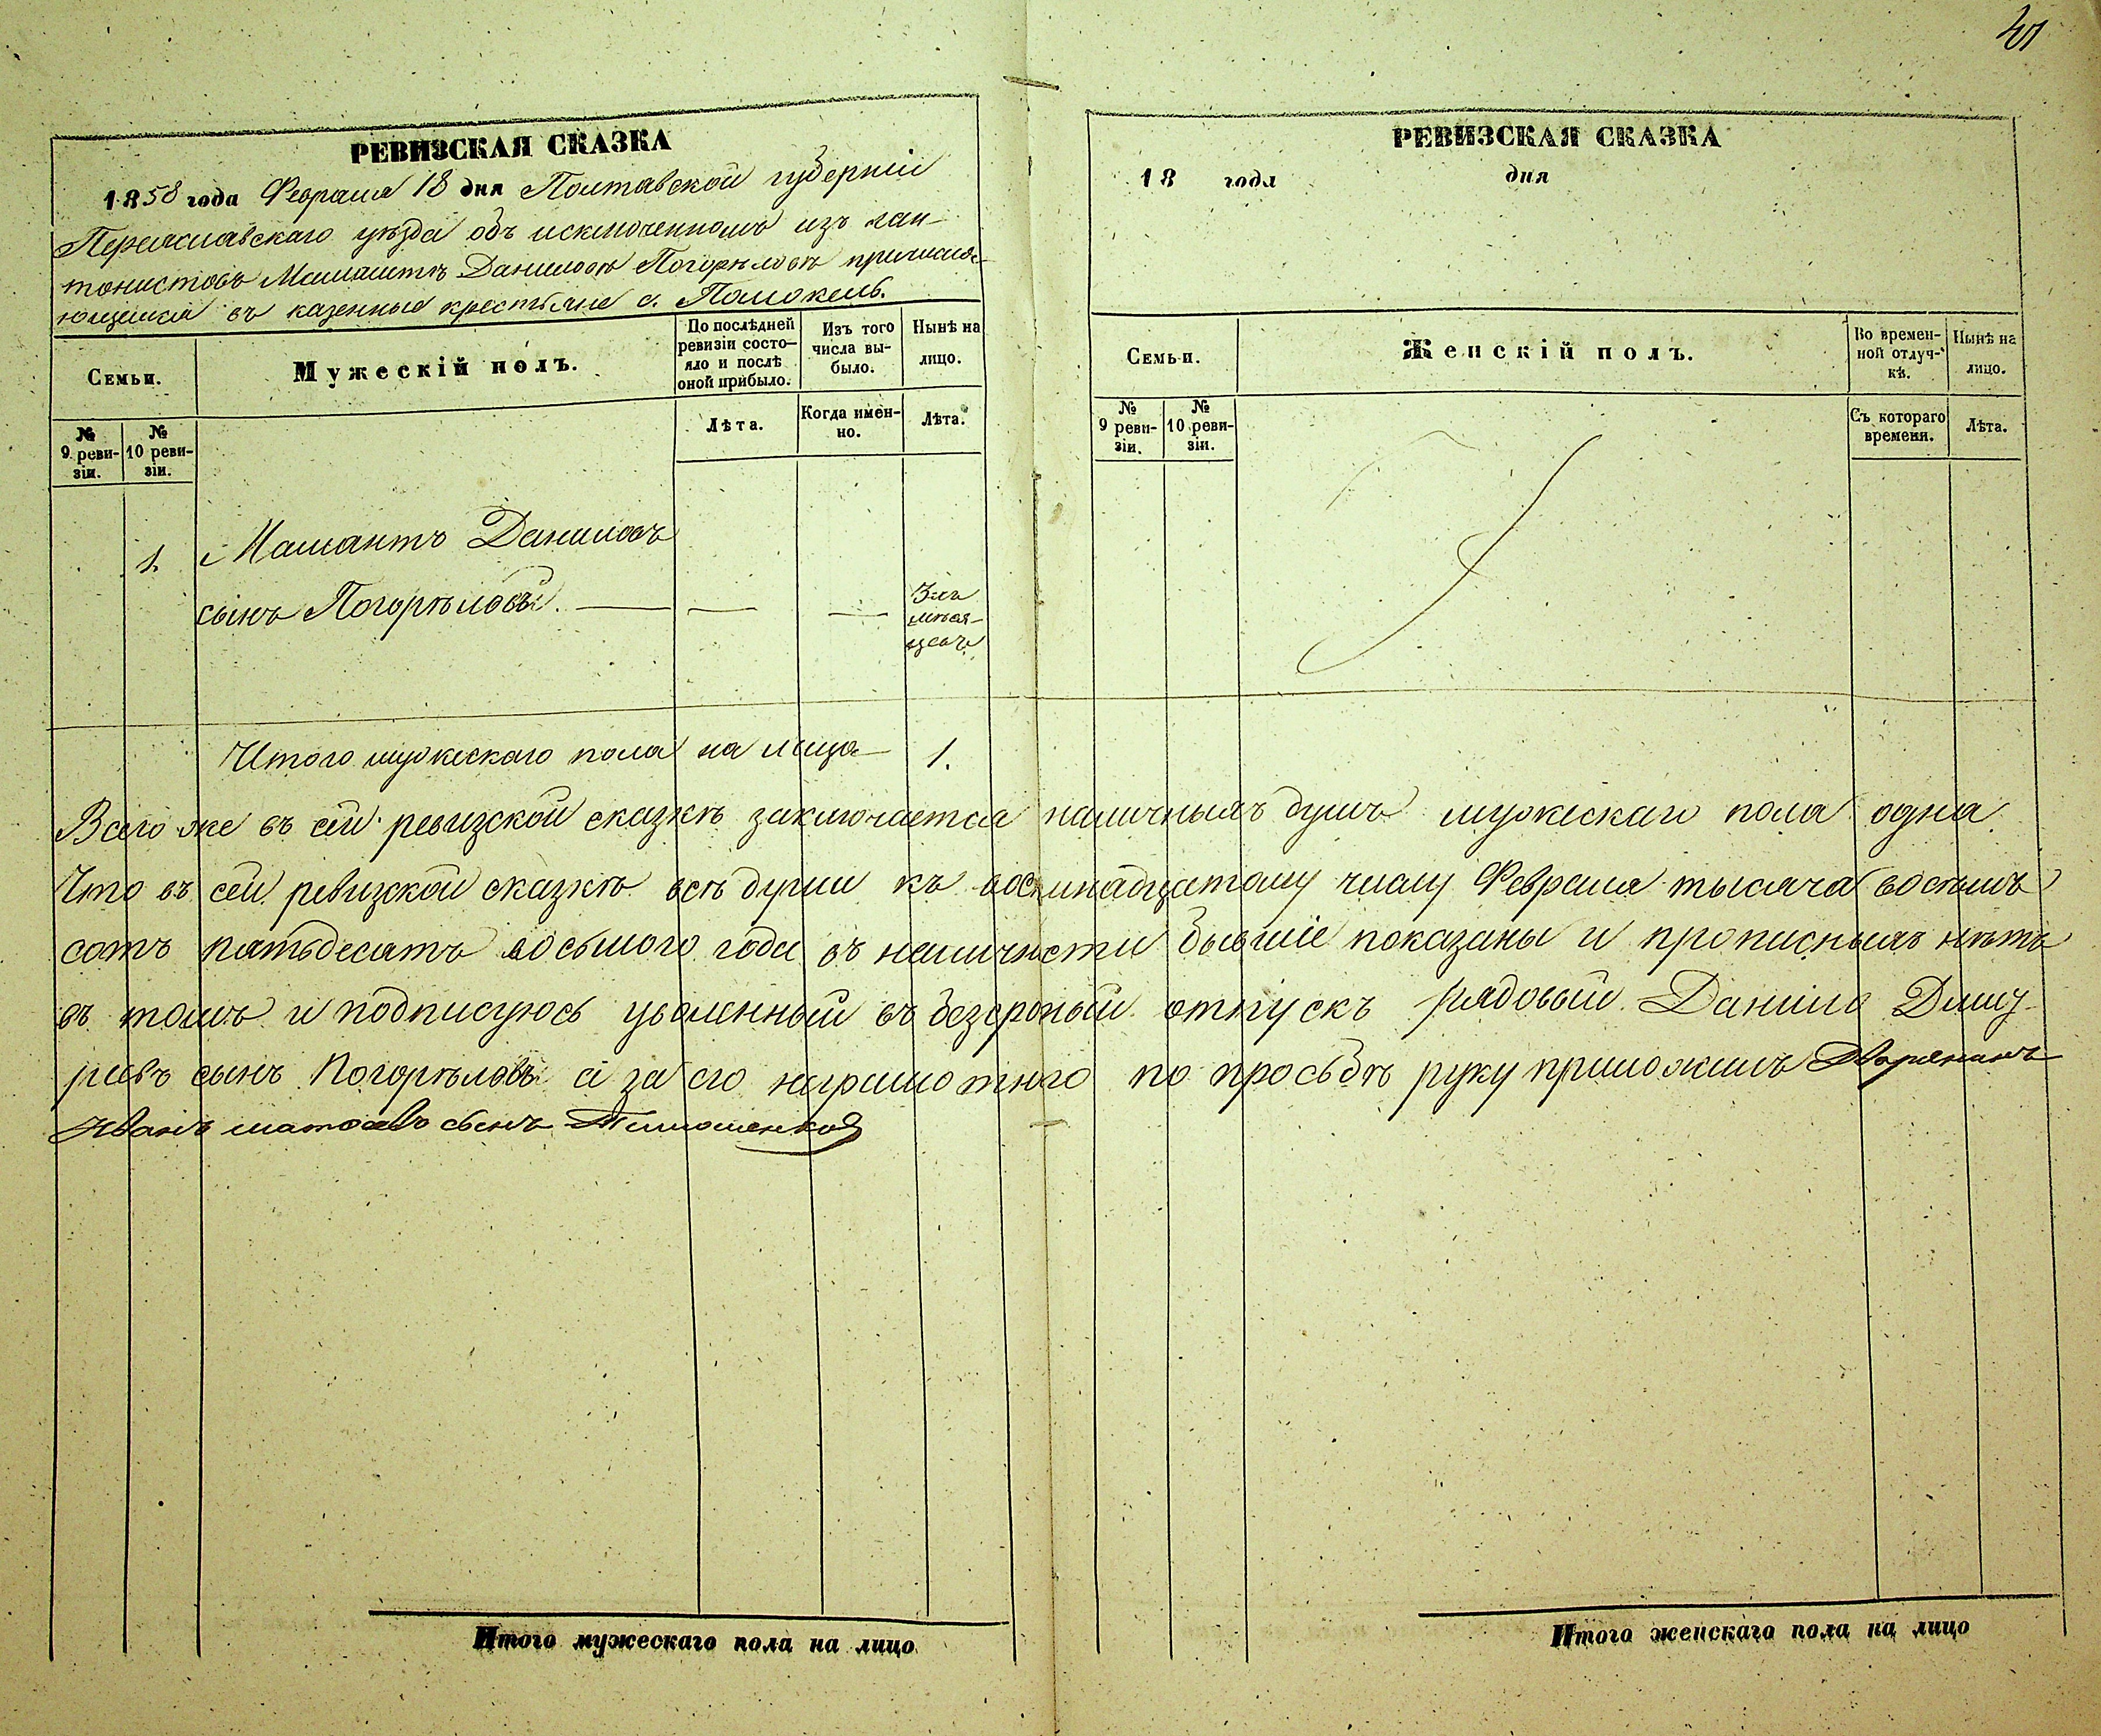 РЕВИЗСКАЯ СКАЗКА
1858 года Февраля 18 дня Полтавской губерніи
Переяславскаго уѣзда объ исключенномъ изъ кан-
тонистовъ Маманттѣ Даниловѣ Погорѣловѣ причисля-
ющемся въ казенные крестьяне с. Помокель.
Семьи.
Мужескій полъ.
По послѣдней ревизіи состо-яло и послѣ оной прибыло.
Изъ того числа вы-было.
Нынѣ на лицо.
№ 9 реви-зіи.
№ 10 реви-зіи.
Лѣта.
Когда имен-но.
Лѣта.
1. Мамантъ Даниловъ
сынъ Погорѣловъ. — — —
3-хъ
мѣся-
цевъ
Итого мужескаго пола на лицо — 1.
РЕВИЗСКАЯ СКАЗКА
18 года дня
Семьи.
Женскій полъ.
Во времен-ной отлуч-кѣ.
Нынѣ на лицо.
№ 9 реви-зіи.
№ 10 реви-зіи.
Съ котораго времени.
Лѣта.
Всего же въ сей ревизской сказкѣ заключается наличныхъ душъ мужескаго пола одна
Что въ сей ревизской сказкѣ всѣ души къ восемнадцатому числу Февраля тысяча восемь
сотъ пятьдесятъ восьмого года въ наличности бывшіе показаны и прописныхъ нѣтъ
въ томъ и подписуюсь уволенный въ безсрочный отпускъ рядовый Данило Дмит-
ріевъ сынъ Погорѣловъ а за его неграмотнаго по просьбѣ руку приложилъ Дворянинъ
Иванъ сынъ Тимошенков
Итого мужескаго пола на лицо
Итого женскаго пола на лицо